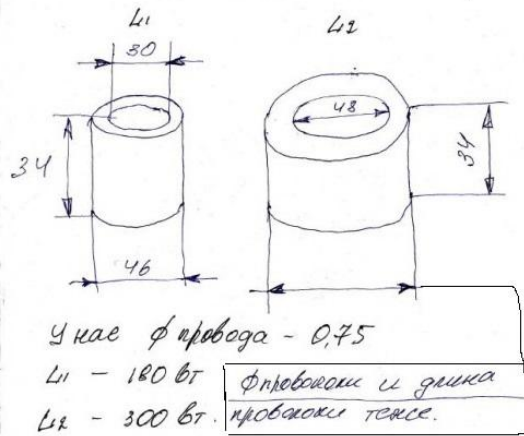 L1 L2
30
48
34 34
46
У нас ф провода - 0,75
L1 - 180 Вт
ф проволоки и длина
L2 - 300 Вт.
проволоки тоже.